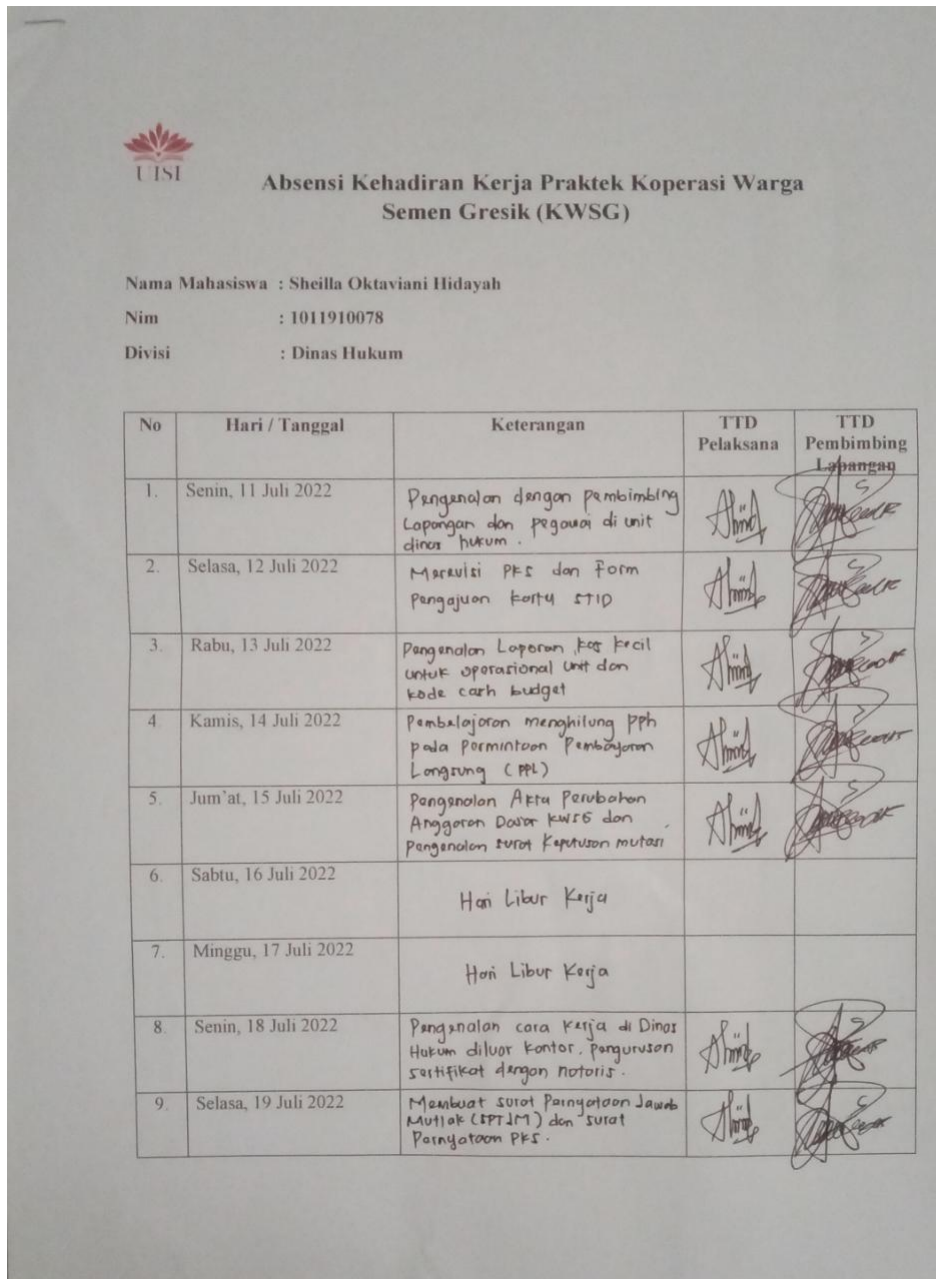 UISI
Absensi Kehadiran Kerja Praktek Koperasi Warga
Semen Gresik (KWSG)
Nama Mahasiswa : Sheilla Oktaviani Hidayah
Nim : 1011910078
Divisi : Dinas Hukum
No Hari / Tanggal Keterangan TTD Pelaksana TTD Pembimbing Lapangan
1. Senin, 11 Juli 2022
Pengenalan dengan pembimbing
Lapangan dan pegawai di unit
dinas hukum.
2. Selasa, 12 Juli 2022
Merevisi PKS dan Form
Pengajuan kartu STID
3. Rabu, 13 Juli 2022
Pengenalan Laporan kas kecil
untuk operasional unit dan
kode cash budget
4. Kamis, 14 Juli 2022
Pembelajaran menghitung pph
pada Permintaan Pembayaran
Langsung (PPL)
5. Jum'at, 15 Juli 2022
Pengenalan Akta Perubahan
Anggaran Dasar KWSG dan
Pengenalan surat Keputusan mutasi
6. Sabtu, 16 Juli 2022
Hari Libur Kerja
7. Minggu, 17 Juli 2022
Hari Libur Kerja
8. Senin, 18 Juli 2022
Pengenalan cara kerja di Dinas
Hukum diluar kantor. pengurusan
sertifikat dengan notaris.
9. Selasa, 19 Juli 2022
Membuat surat Pernyataan Jawab
Mutlak (SPTJM) dan surat
Pernyataan PKS.